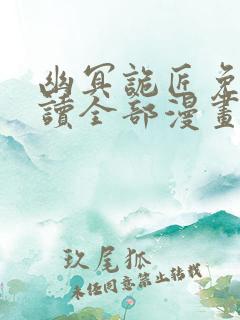 幽冥詭匠免
讀全部漫畫
玖尾狐
未经同意禁止转载